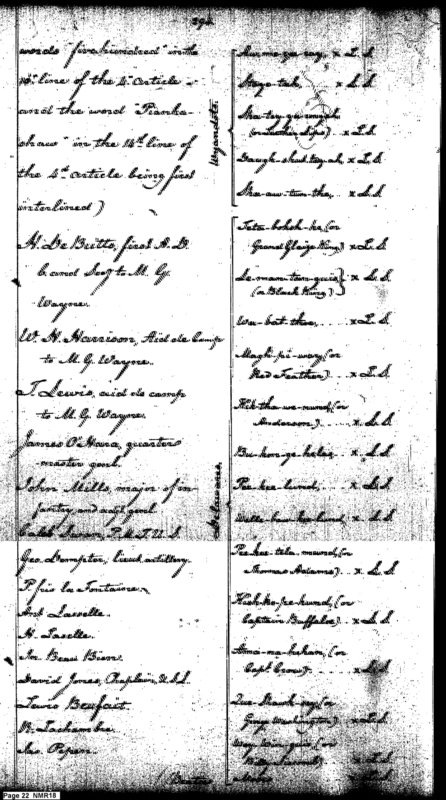 296.
words "five hundred" in the
10th line of the 4th article
and the word "Pianka-
shaw" in the 14th line of
the 4th article being first
interlined)
H. De Butts, first A. D.
C. and Secy to M. G.
Wayne.
W. H. Harrison, Aid de Camp
to M. G. Wayne.
T. Lewis, aid de camp
to M. G. Wayne.
James O'Hara, quarter
master genl.
John Mills, major of in-
fantry, and adjt genl
Caleb Swan, P. M. T. U. S.
Geo. Dempter, lieut. artillery.
P. fris la Fontaine.
Ant Lasselle.
H. Laselle.
Jn Beau Bien.
David Jones, Chaplain, U. S. L.
Lewis Beufait
R. Lachambre.
Jas. Pepen.
(Baties
Wyandots.
x L. S
x L. S
(or Leather Lips) x L. S.
Daugh-shut-tay-ah, x L. S
Sha-aw-run-the, x L. S
Delawares.
Teta-boksh-ke, (or
Grand Glaize King) x L. S
Le-man-tan-quis
(or Black King) x L. S
Wa-bat-thoe, x L. S
Magh-pi-way, (or
Red Feather) x L. S
Kik-tha-we-nund, (or
Anderson) x L. S
Bu-kon-ge-helas, x L. S
Pee-kee-lund, x L. S
Welle-baw-kee-lund, x L. S
Pee-kee-tele-mund, (or
Thomas Adams) x L. S
Kish-ko-pe-kund, (or
Captain Buffaloe) x L. S
Ama-na-hehan, (or
Capt. Crow) x L. S
Que-Shawk-sey, (or
George Washington) x L. S
Wey-Win-quis, (or
Billy Siscomb) x L. S
Moses x L. S
Page 22 NMR18